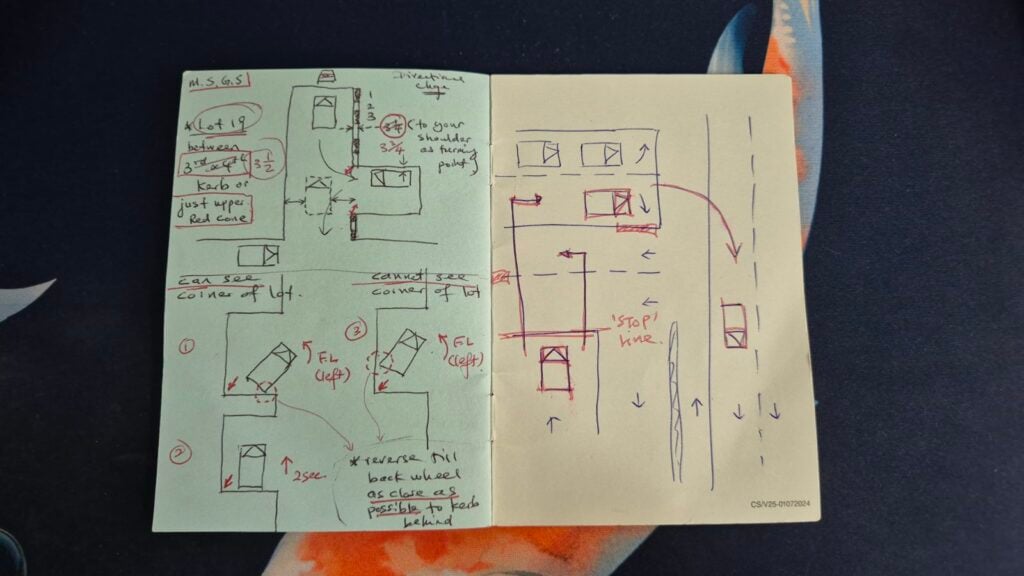 M.S.G.S
Directional
chge
* Lot 19
between
3rd & 4th 3 1/2
kerb or
just upper
Red cone
1
2
3
3 1/4 (to your
shoulder
as turning
point)
3 3/4
can see
corner of lot.
cannot see
corner of lot
①
FL
(left)
③
FL
(left)
②
2 sec
* reverse till
back wheel
as close as
possible to kerb
behind
'STOP'
line.
CS/V25-01072024